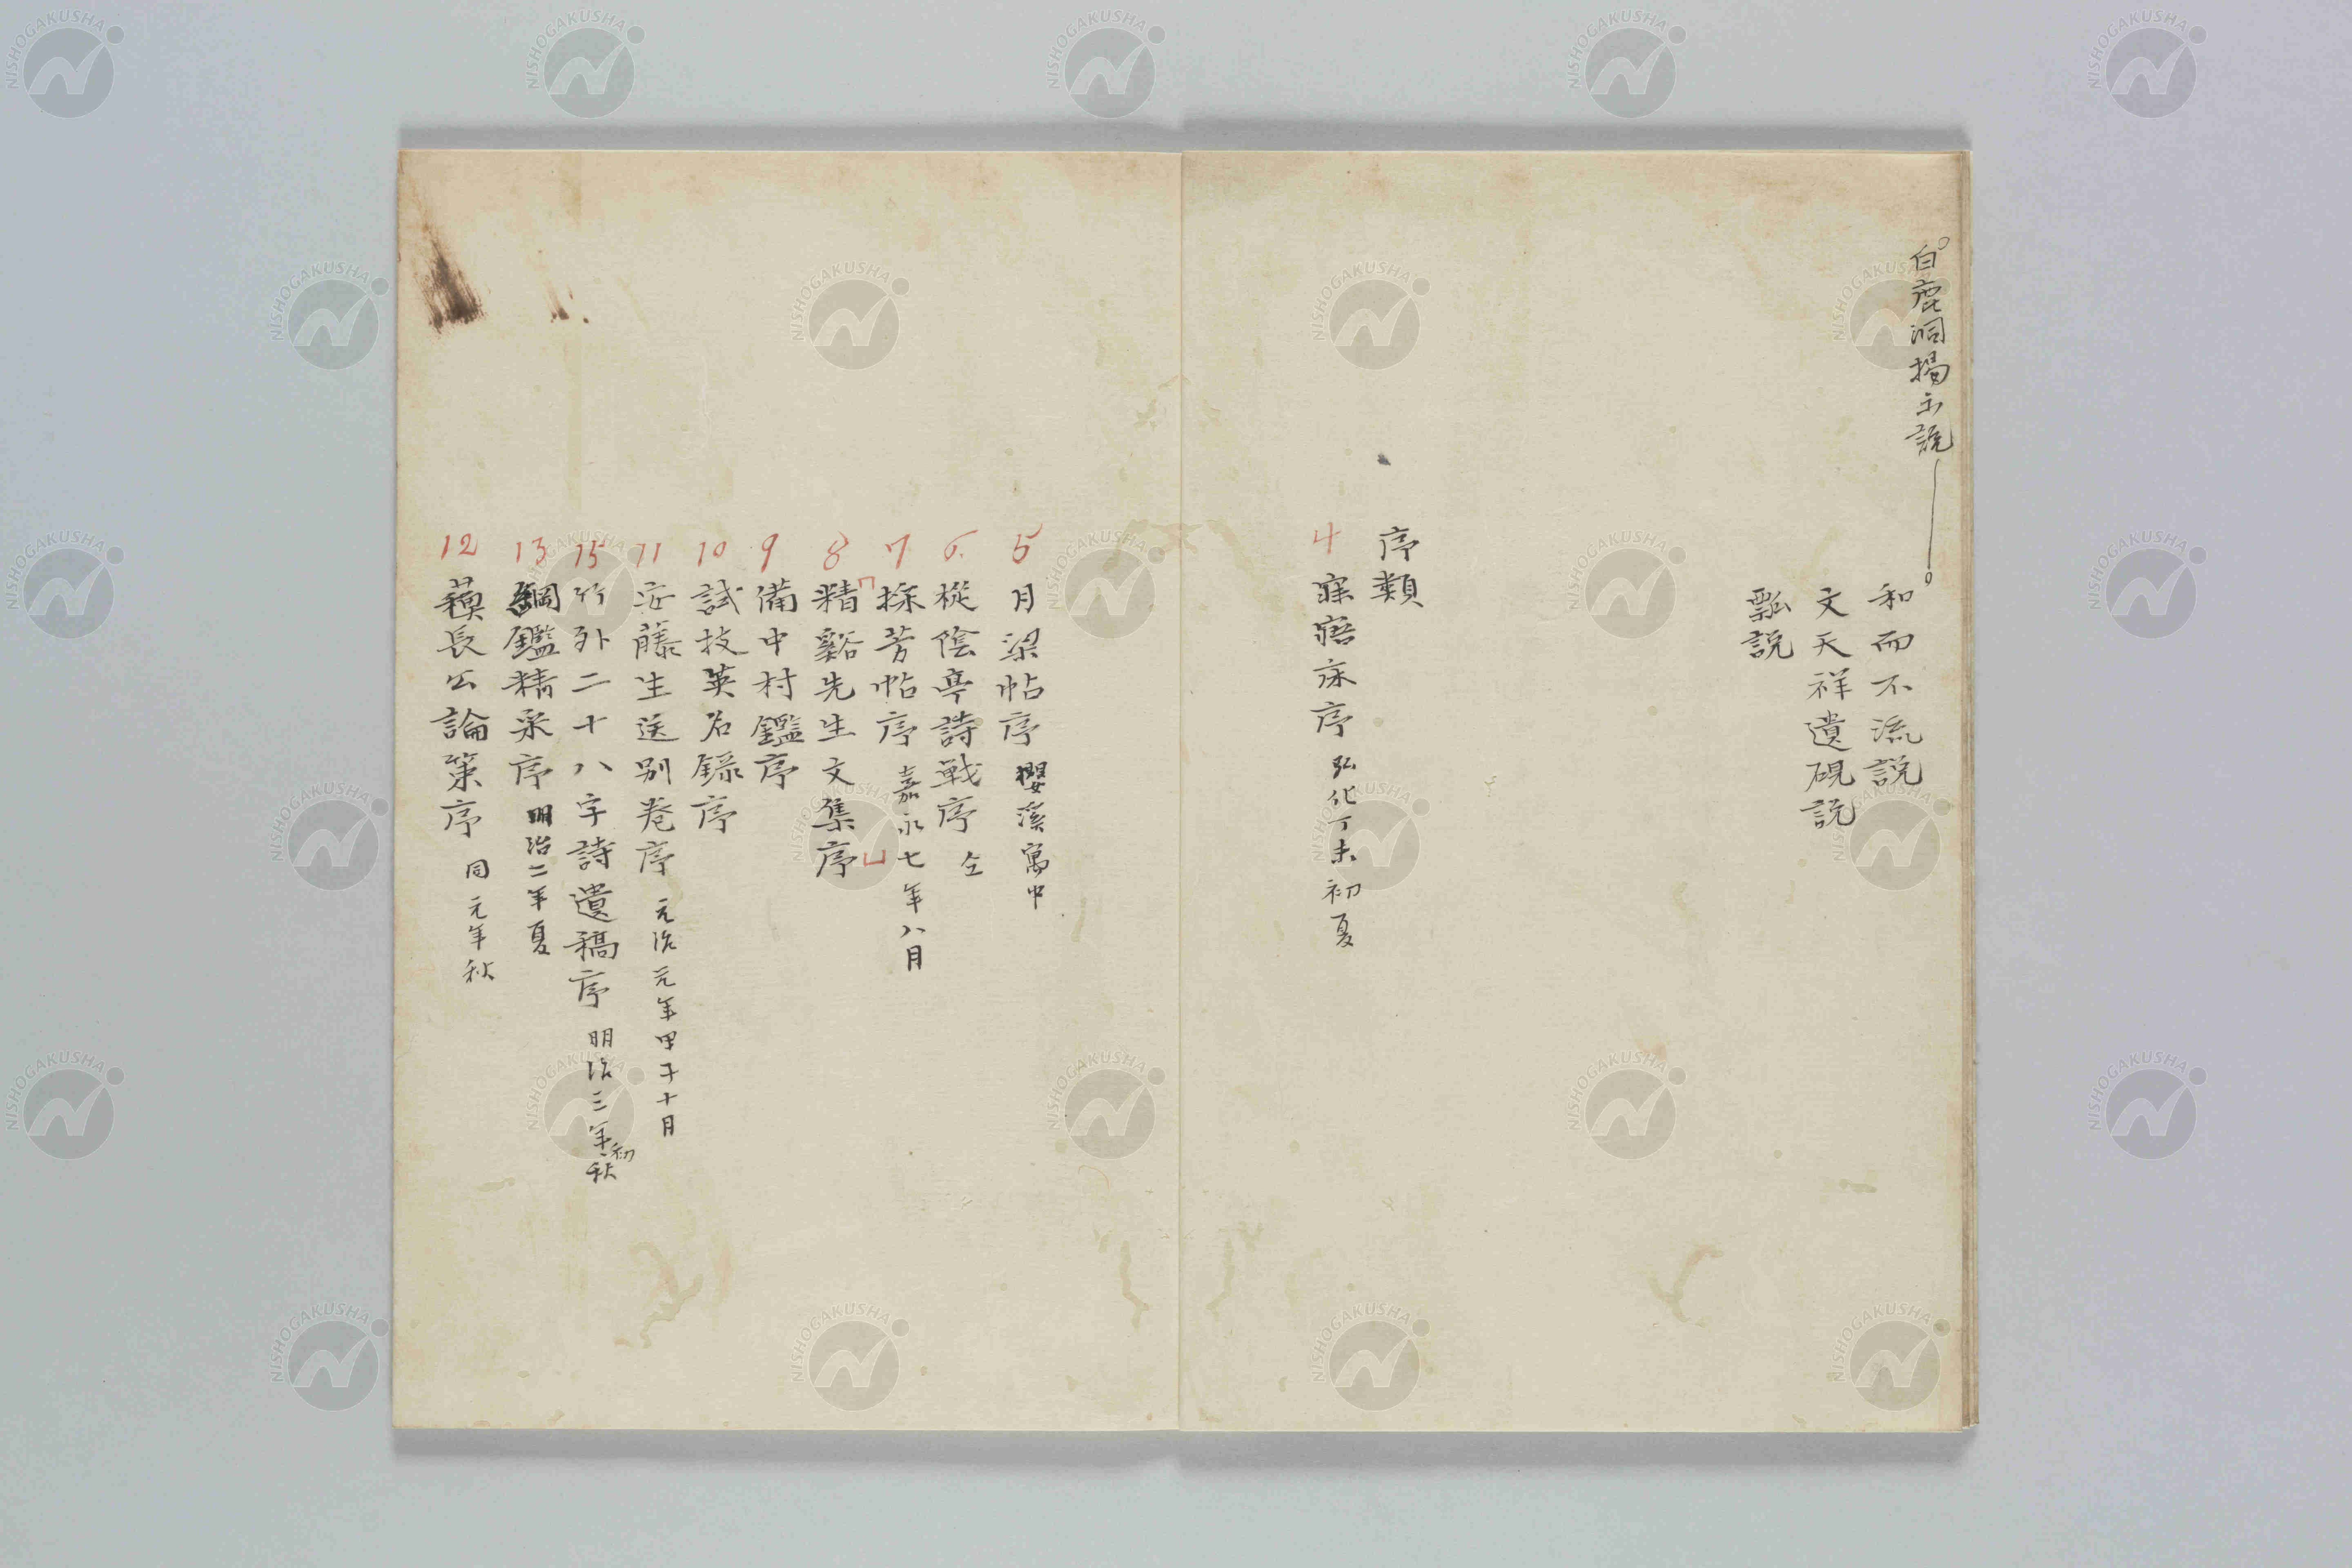 白鹿洞揭示説
和而不流説
文天祥遺硯説
瓢説
序類
4 寐寤床序 弘化丁未初夏
5 月梁帖序 櫻溪寓中
6. 樅陰亭詩戦序 仝
7 採芳帖序 嘉永七年八月
8 精谿先生文集序
9 備中村鑑序
10 試技英名録序
11 安藤生送別巻序 元治元年甲子十月
15 竹外二十八字詩遺稿序 明治三年初秋
13 綱鑑精采序 明治二年夏
12 蘓長公論策序 同元年秋
NISHOGAKUSHA